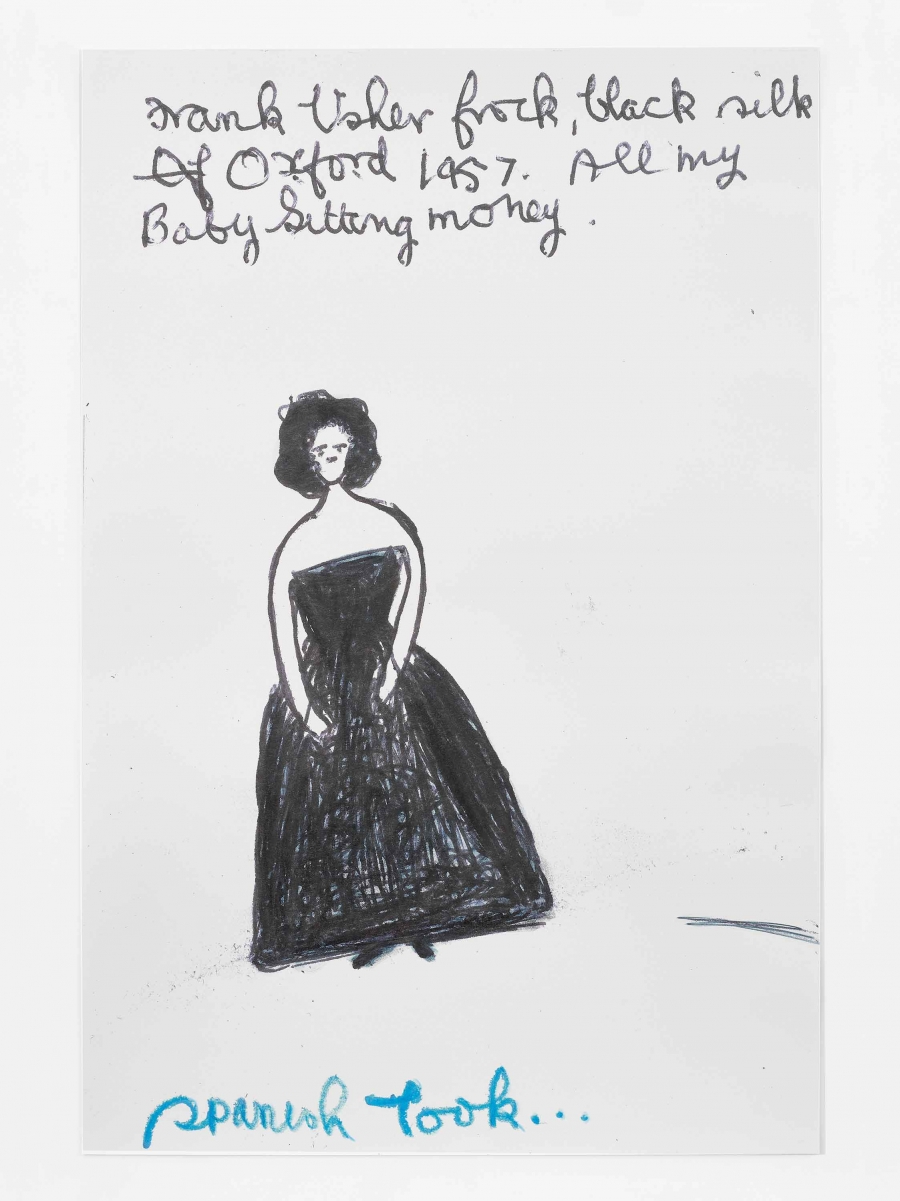 Frank Usher frock, black silk
Of Oxford 1957. All my
Baby Sitting money.
Spanish look...